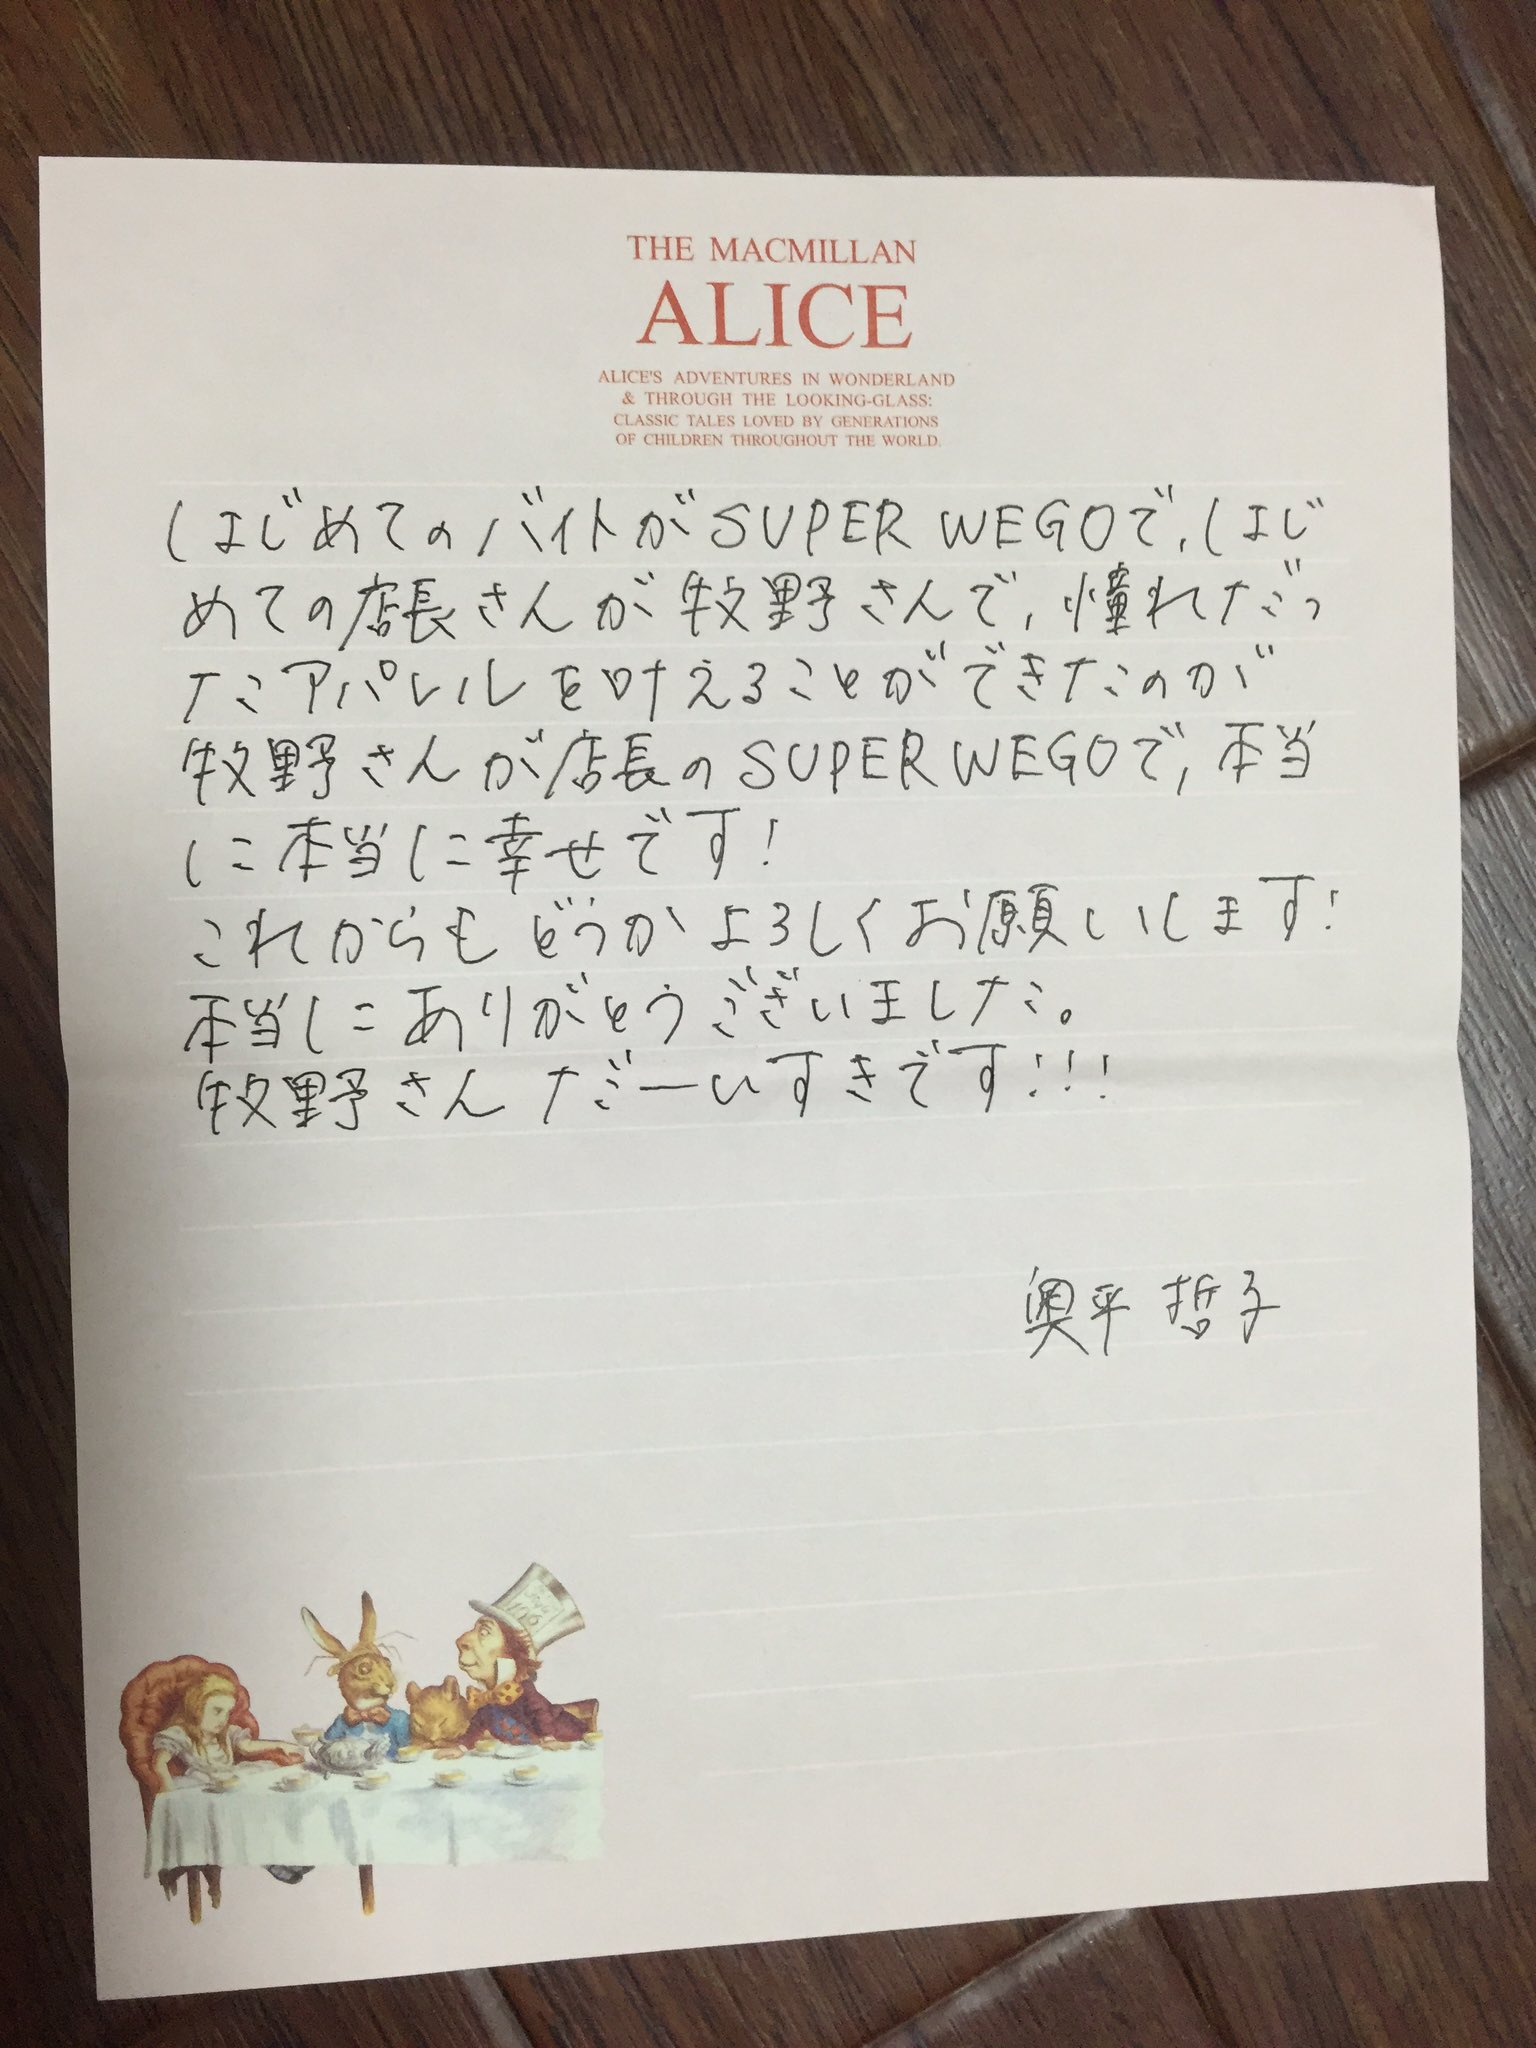 THE MACMILLAN
ALICE
ALICE'S ADVENTURES IN WONDERLAND
& THROUGH THE LOOKING-GLASS:
CLASSIC TALES LOVED BY GENERATIONS
OF CHILDREN THROUGHOUT THE WORLD.
はじめてのバイトがSUPER WEGOで、はじ
めての店長さんが牧野さんで、憧れだっ
たアパレルを叶えることができたのが
牧野さんが店長のSUPER WEGOで、本当
に本当に幸せです!
これからもどうかよろしくお願いします!
本当にありがとうございました。
牧野さん だーいすきです!!!
奥平 哲子